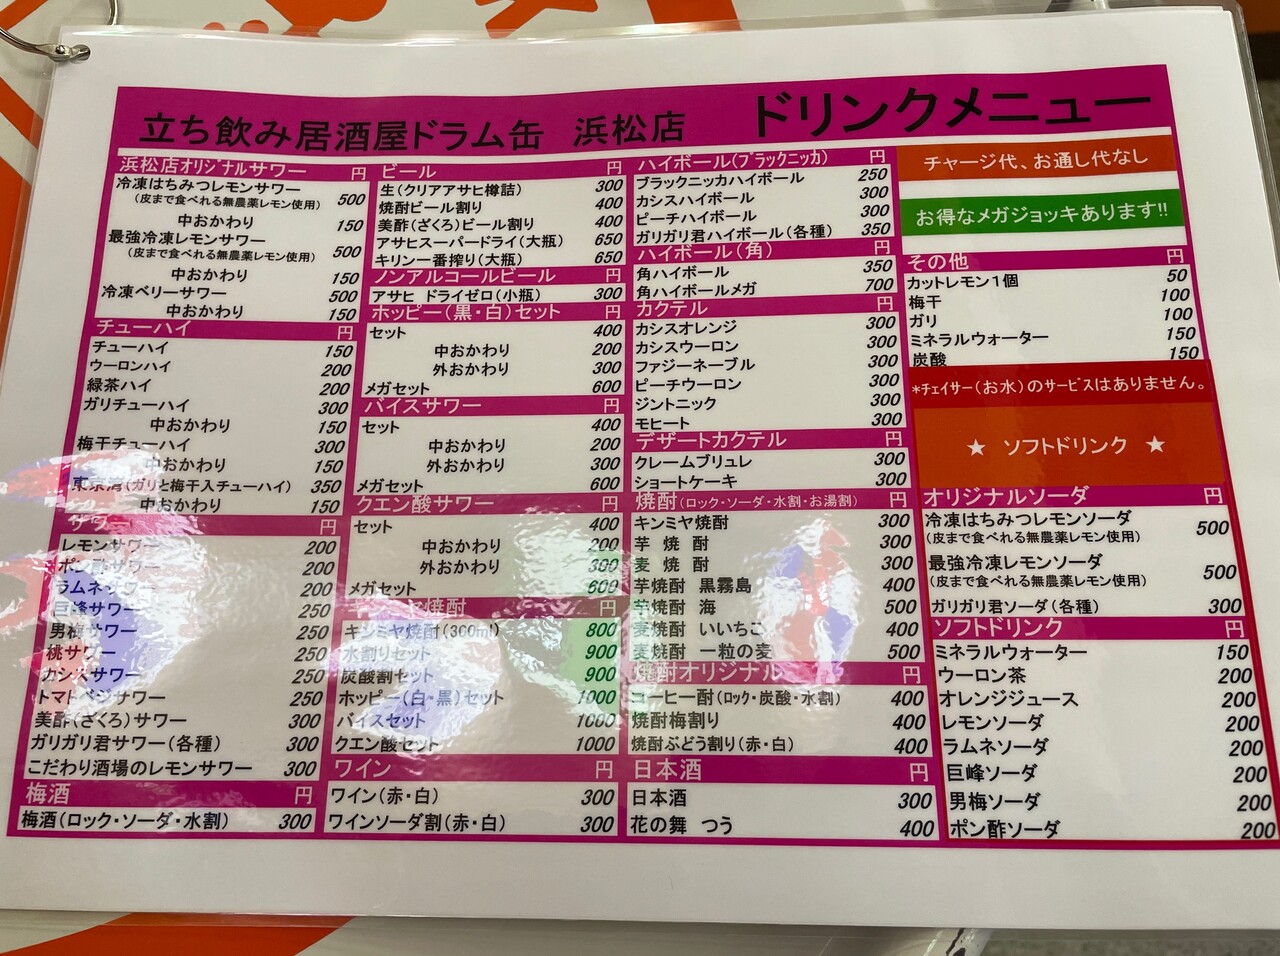 立ち飲み居酒屋ドラム缶 浜松店 ドリンクメニュー
浜松店オリジナルサワー 円
冷凍はちみつレモンサワー
(皮まで食べれる無農薬レモン使用) 500
中おかわり 150
最強冷凍レモンサワー
(皮まで食べれる無農薬レモン使用) 500
中おかわり 150
冷凍ベリーサワー 500
中おかわり 150
チューハイ 円
チューハイ 150
ウーロンハイ 200
緑茶ハイ 200
ガリチューハイ 300
中おかわり 150
梅干チューハイ 300
中おかわり 150
東京湾(ガリと梅干入チューハイ) 350
中おかわり 150
サワー 円
レモンサワー 200
ポン酢サワー 200
ラムネサワー 200
巨峰サワー 250
男梅サワー 250
桃サワー 250
カシスサワー 250
トマトベジサワー 250
美酢(ざくろ)サワー 300
ガリガリ君サワー(各種) 300
こだわり酒場のレモンサワー 300
梅酒 円
梅酒(ロック・ソーダ・水割) 300
ビール 円
生(クリアアサヒ樽詰) 300
焼酎ビール割り 400
美酢(ざくろ)ビール割り 400
アサヒスーパードライ(大瓶) 650
キリン一番搾り(大瓶) 650
ノンアルコールビール 円
アサヒ ドライゼロ(小瓶) 300
ホッピー(黒・白)セット 円
セット 400
中おかわり 200
外おかわり 300
メガセット 600
バイスサワー 円
セット 400
中おかわり 200
外おかわり 300
メガセット 600
クエン酸サワー 円
セット 400
中おかわり 200
外おかわり 300
メガセット 600
キンミヤ焼酎 円
キンミヤ焼酎(360ml) 800
水割りセット 900
炭酸割セット 900
ホッピー(白・黒)セット 1000
バイスセット 1000
クエン酸セット 1000
ワイン 円
ワイン(赤・白) 300
ワインソーダ割(赤・白) 300
ハイボール(ブラックニッカ) 円
ブラックニッカハイボール 250
カシスハイボール 300
ピーチハイボール 300
ガリガリ君ハイボール(各種) 350
ハイボール(角) 円
角ハイボール 350
角ハイボールメガ 700
カクテル 円
カシスオレンジ 300
カシスウーロン 300
ファジーネーブル 300
ピーチウーロン 300
ジントニック 300
モヒート 300
デザートカクテル 円
クレームブリュレ 300
ショートケーキ 300
焼酎(ロック・ソーダ・水割・お湯割) 円
キンミヤ焼酎 300
芋 焼 酎 300
麦 焼 酎 300
芋焼酎 黒霧島 400
芋焼酎 海 500
麦焼酎 いいちこ 400
麦焼酎 一粒の麦 500
焼酎オリジナル 円
コーヒー酎(ロック・炭酸・水割) 400
焼酎梅割り 400
焼酎ぶどう割り(赤・白) 400
日本酒 円
日本酒 300
花の舞 つう 400
チャージ代、お通し代なし
お得なメガジョッキあります!!
その他 円
カットレモン1個 50
梅干 100
ガリ 100
ミネラルウォーター 150
炭酸 150
*チェイサー(お水)のサービスはありません。
★ ソフトドリンク ★
オリジナルソーダ 円
冷凍はちみつレモンソーダ
(皮まで食べれる無農薬レモン使用) 500
最強冷凍レモンソーダ
(皮まで食べれる無農薬レモン使用) 500
ガリガリ君ソーダ(各種) 300
ソフトドリンク 円
ミネラルウォーター 150
ウーロン茶 200
オレンジジュース 200
レモンソーダ 200
ラムネソーダ 200
巨峰ソーダ 200
男梅ソーダ 200
ポン酢ソーダ 200